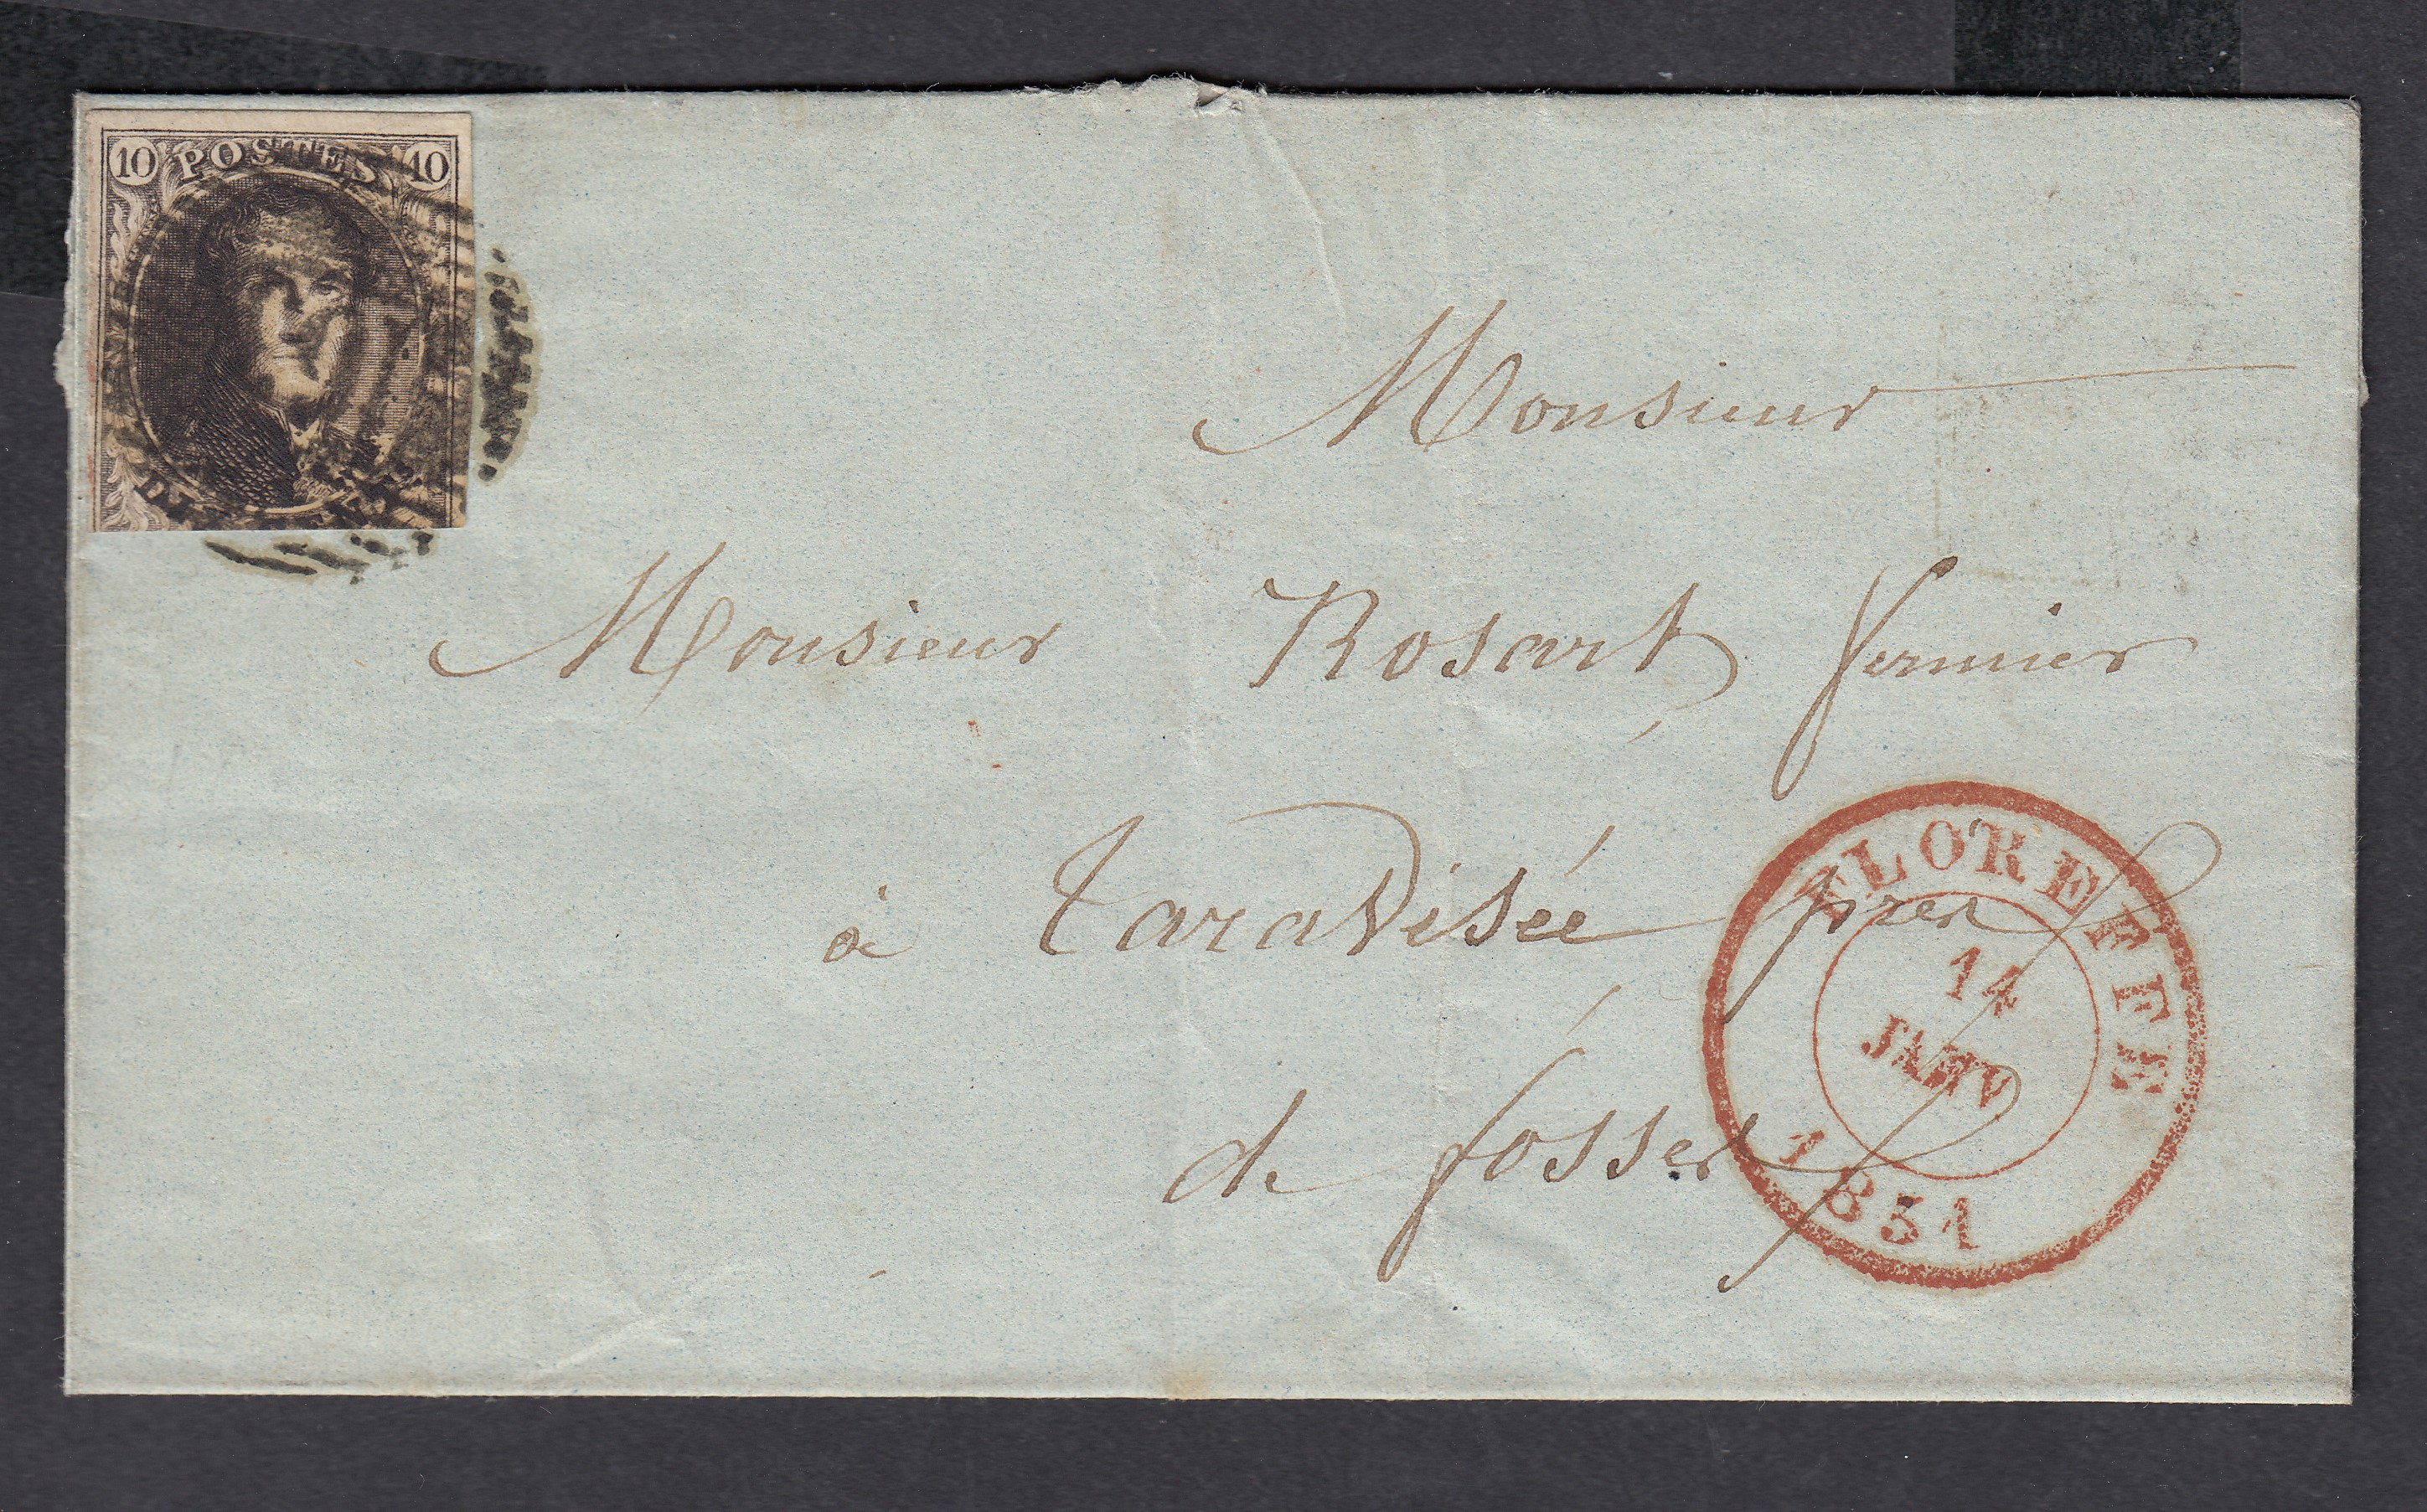 10 POSTES 10
Monsieur
Monsieur Rosart fermier
à taravisée pres
de fosses
FLOREFFE
14
JANV
1851